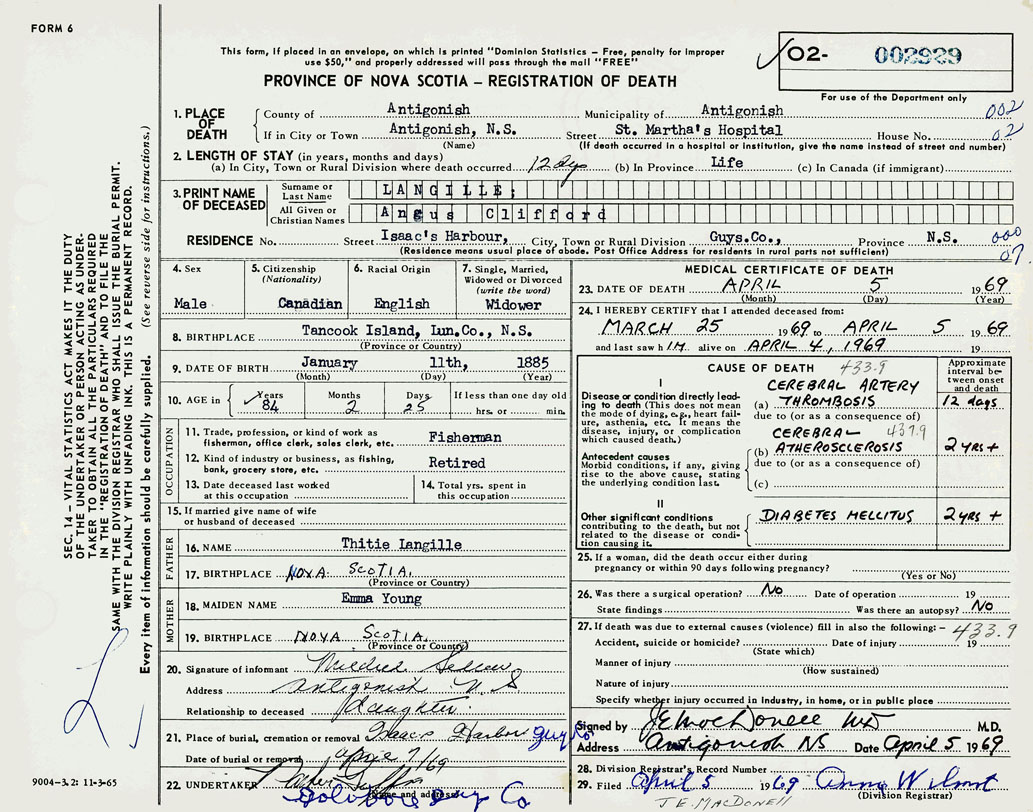 FORM 6
This form, if placed in an envelope, on which is printed "Dominion Statistics – Free, penalty for improper
use $50," and properly addressed will pass through the mail "FREE"
PROVINCE OF NOVA SCOTIA – REGISTRATION OF DEATH
O2- 002929
For use of the Department only
1. PLACE OF DEATH
County of Antigonish Municipality of Antigonish 002
If in City or Town Antigonish, N.S. Street St. Martha's Hospital House No. 02
(Name) (If death occurred in a hospital or institution, give the name instead of street and number)
2. LENGTH OF STAY (in years, months and days)
(a) In City, Town or Rural Division where death occurred 12 dys (b) In Province Life (c) In Canada (if immigrant)
3. PRINT NAME OF DECEASED
Surname or Last Name LANGILLE;
All Given or Christian Names Angus Clifford
RESIDENCE No. Street Isaac's Harbour, City, Town or Rural Division Guys.Co., Province N.S. 000
(Residence means usual place of abode. Post Office Address for residents in rural parts not sufficient) 07
4. Sex
Male
5. Citizenship
(Nationality)
Canadian
6. Racial Origin
English
7. Single, Married,
Widowed or Divorced
(write the word)
Widower
8. BIRTHPLACE Tancook Island, Lun.Co., N.S.
(Province or Country)
9. DATE OF BIRTH January 11th, 1885
(Month) (Day) (Year)
10. AGE in
Years Months Days If less than one day old
84 2 25 hrs. or min.
OCCUPATION
11. Trade, profession, or kind of work as
fisherman, office clerk, sales clerk, etc. Fisherman
12. Kind of industry or business, as fishing,
bank, grocery store, etc. Retired
13. Date deceased last worked
at this occupation
14. Total yrs. spent in
this occupation
15. If married give name of wife
or husband of deceased
FATHER
16. NAME Thitie Langille
17. BIRTHPLACE NOVA SCOTIA.
(Province or Country)
MOTHER
18. MAIDEN NAME Emma Young
19. BIRTHPLACE NOVA SCOTIA.
(Province or Country)
20. Signature of informant Mildred
Address Antigonish N S
Relationship to deceased daughter
21. Place of burial, cremation or removal Isaacs Harbor Guy Co
Date of burial or removal April 7/69
22. UNDERTAKER
(Name and address)
Goldboro Guy Co
MEDICAL CERTIFICATE OF DEATH
23. DATE OF DEATH APRIL 5 1969
(Month) (Day) (Year)
24. I HEREBY CERTIFY that I attended deceased from:
MARCH 25 1969 to APRIL 5 1969
and last saw h IM alive on APRIL 4, 1969 19
CAUSE OF DEATH 433.9
Approximate interval between onset and death
I
Disease or condition directly leading to death (This does not mean the mode of dying, e.g., heart failure, asthenia, etc. It means the disease, injury, or complication which caused death.)
CEREBRAL ARTERY
(a) THROMBOSIS 12 days
due to (or as a consequence of)
Antecedent causes
Morbid conditions, if any, giving rise to the above cause, stating the underlying condition last.
CEREBRAL 437.9
(b) ATHEROSCLEROSIS 2 yrs+
due to (or as a consequence of)
(c)
II
Other significant conditions
contributing to the death, but not related to the disease or condition causing it.
DIABETES MELLITUS 2 yrs +
25. If a woman, did the death occur either during
pregnancy or within 90 days following pregnancy?
(Yes or No)
26. Was there a surgical operation? No Date of operation 19
State findings Was there an autopsy? No
27. If death was due to external causes (violence) fill in also the following: – 433.9
Accident, suicide or homicide? Date of injury 19
(State which)
Manner of injury
(How sustained)
Nature of injury
Specify whether injury occurred in industry, in home, or in public place
Signed by J E MacDonell MD M.D.
Address Antigonish NS Date April 5 1969
28. Division Registrar's Record Number
29. Filed April 5 1969 Anna
(Division Registrar)
J.E. MACDONELL
SEC. 14 – VITAL STATISTICS ACT MAKES IT THE DUTY
OF THE UNDERTAKER OR PERSON ACTING AS UNDER-
TAKER TO OBTAIN ALL THE PARTICULARS REQUIRED
IN THE "REGISTRATION OF DEATH" AND TO FILE THE
SAME WITH THE DIVISION REGISTRAR WHO SHALL ISSUE THE BURIAL PERMIT.
WRITE PLAINLY WITH UNFADING INK. THIS IS A PERMANENT RECORD.
Every item of information should be carefully supplied. (See reverse side for instructions.)
9004-3.2: 11-3-65